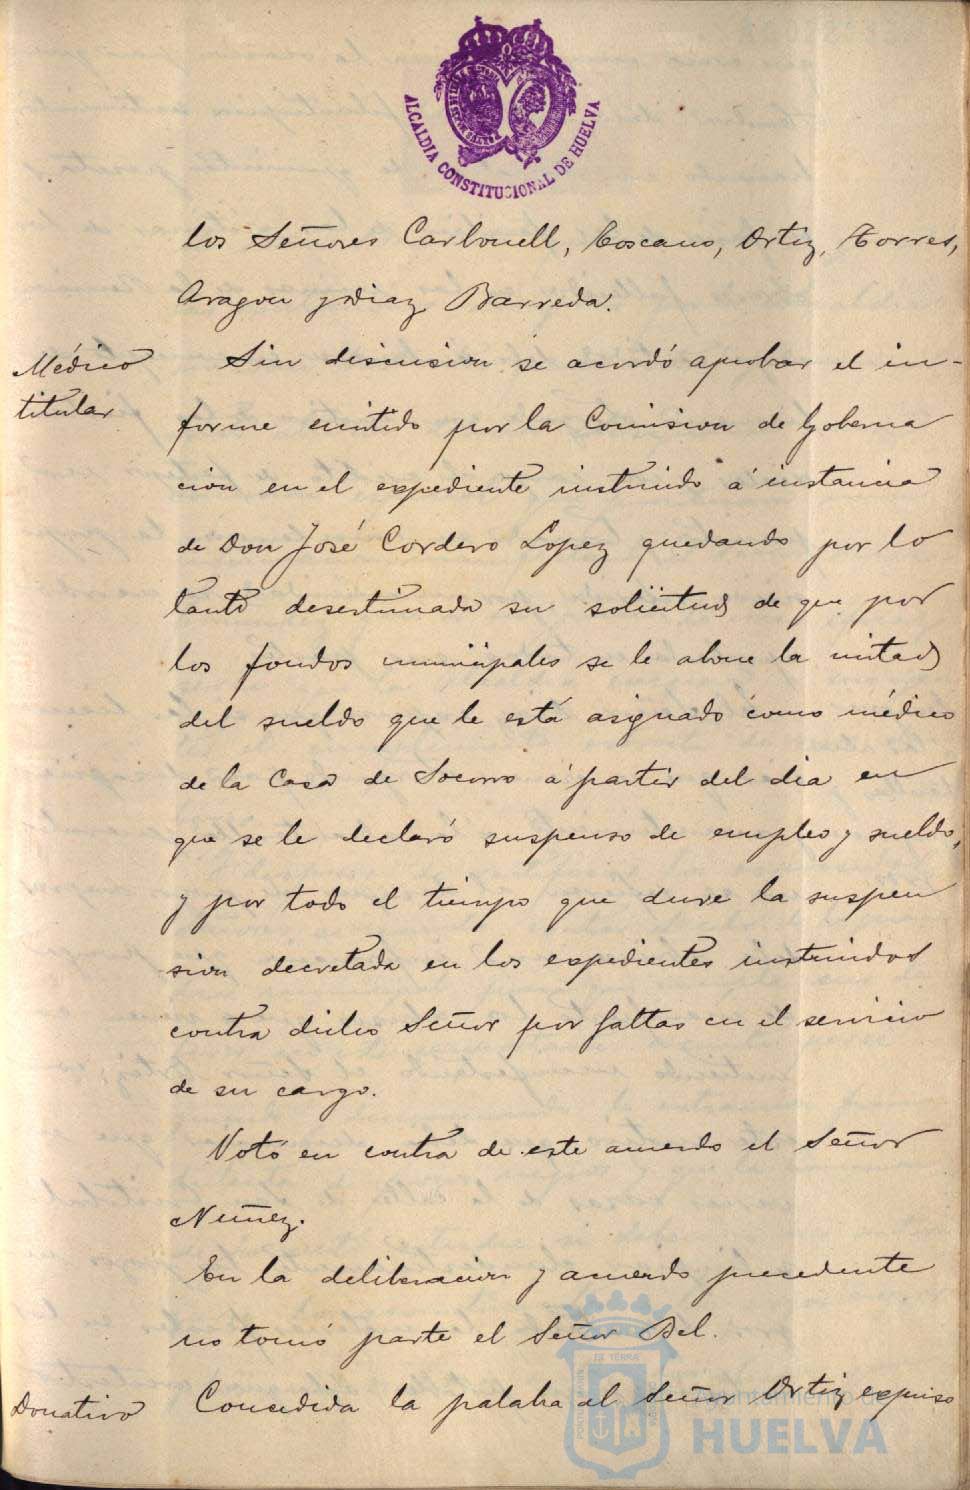 ALCALDIA CONSTITUCIONAL DE HUELVA
los Señores Carbonell, Coscano, Ortiz, Torres,
Aragon y Diaz Barreda.
Médico
titular
Sin discusion se acordó aprobar el in-
forme emitido por la Comision de Goberna
cion en el expediente instruido á instancia
de Don José Cordero Lopez quedando por lo
tanto desestimada su solicitud de que por
los fondos municipales se le abone la mitad
del sueldo que le está asignado como médico
de la Casa de Socorro á partir del dia en
que se le declaró suspenso de empleo y sueldo,
y por todo el tiempo que dure la suspen
sion decretada en los expedientes instruidos
contra dicho Señor por faltas en el servicio
de su cargo.
Votó en contra de este acuerdo el Señor
Nuñez.
En la deliberacion y acuerdo precedente
no tomó parte el Señor Bel.
Donativo
Concedida la palabra al Señor Ortiz expuso
Ayuntamiento de
HUELVA